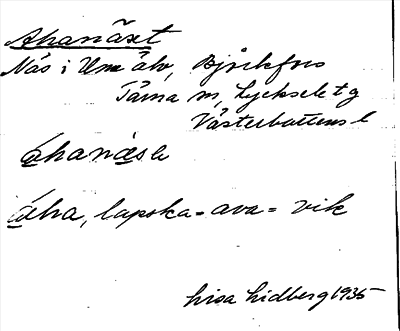 Ahanäset
Näs i Ume älv, Björkfors
Tärna sn, Lycksele tg
Västerbottens l
áhanäsle
áha, lapska = ava = vik
Lisa Lidberg 1935